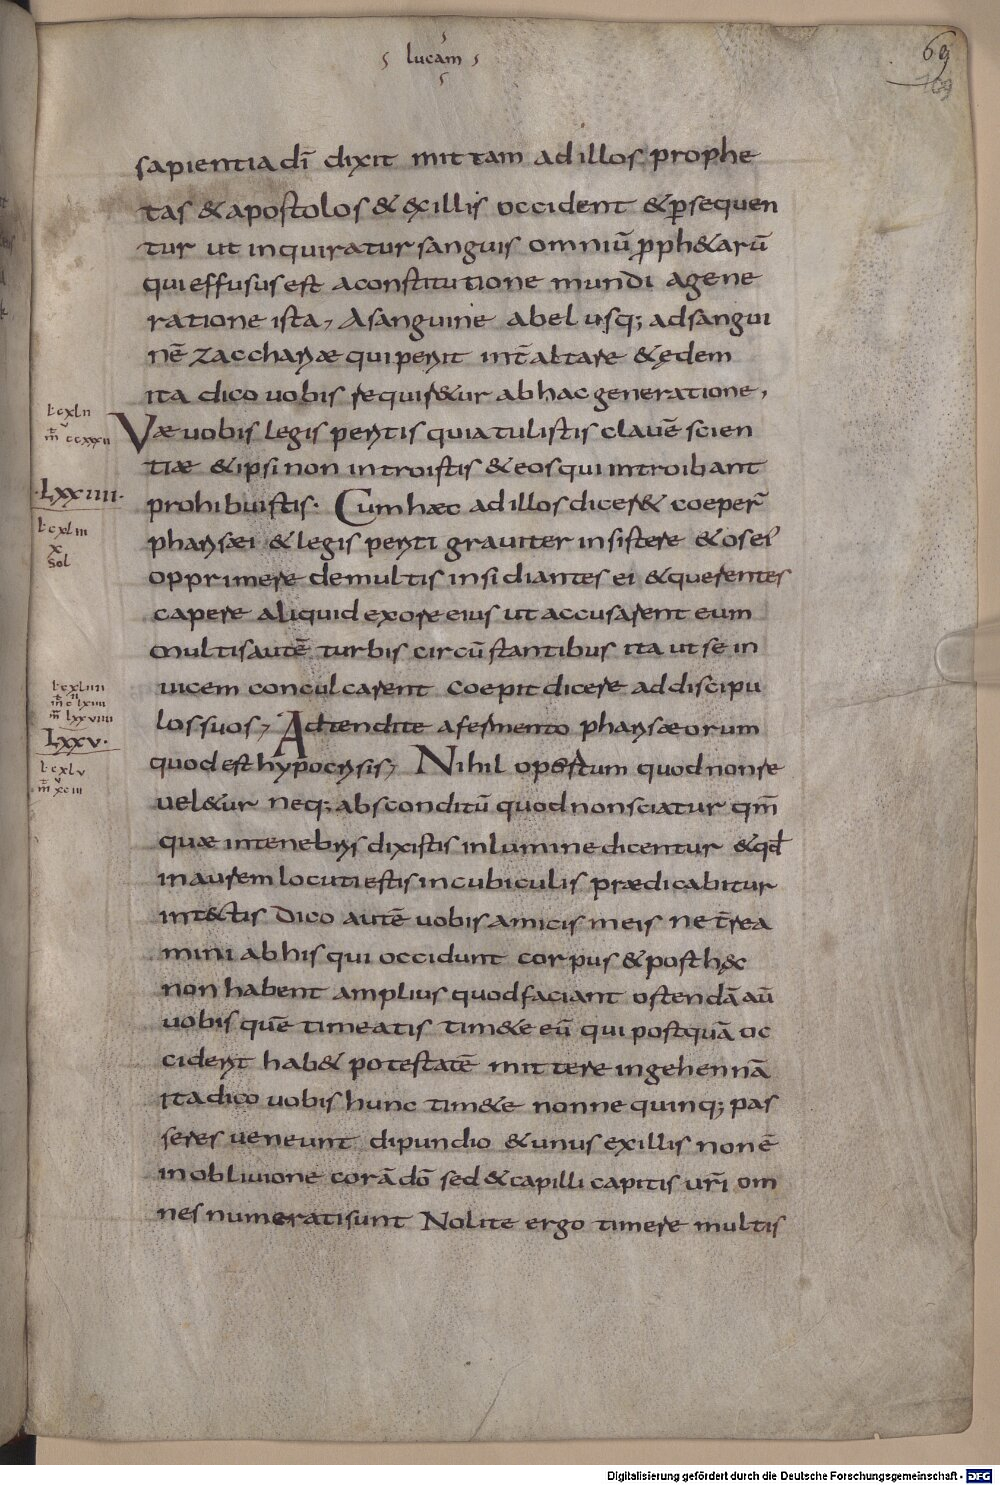 lucam
69
169
sapientia dī dixit mittam ad illos prophe
tas & apostolos & ex illis occident & ꝑsequen
tur ut inquiratur sanguis omniū ꝓph&arū
qui effusus est a constitutione mundi a gene
ratione ista, A sanguine abel usq; ad sangui
nē zacchariæ qui periit int̄ altare & ędem
ita dico uobis requir&ur ab hac generatione,
·t·cxlii
m̄ ccxxxii
Væ uobis legis peritis quia tulistis clauē scien
tiæ & ipsi non introistis & eos qui introibant
·LXXIIII·
prohibuistis· Cum hæc ad illos dicer& coeper̄
·t·cxliii
x
sol
pharisæi & legis periti grauiter insistere & os ei'
opprimere de multis insidiantes ei & querentes
capere aliquid ex ore eius ut accusarent eum
multis autē turbis circū stantibus ita ut se in
·t·cxliiii
m̄ c lxiiii
m̄ lxxviiii
uicem conculcarent coepit dicere ad discipu
los suos, Adtendite a fermento pharisæorum
LXXV·
quod est hypocrisis, Nihil opertum quod non re
·t·cxlv
m̄ xciii
uel&ur neq; absconditū quod non sciatur qm̄
quæ in tenebris dixistis in lumine dicentur & qđ
in aurem locuti estis in cubiculis prædicabitur
in t&ctis Dico autē uobis amicis meis ne t̄rea
mini ab his qui occidunt corpus & post hęc
non habent amplius quod faciant ostendā aū
uobis quē timeatis tim&e eū qui postquā oc
ciderit hab& potestatē mittere in gehennā
ita dico uobis hunc tim&e nonne quinq; pas
seres ueneunt dipundio & unus ex illis non ē
in obliuione corā dō sed & capilli capitis ur̄i om
nes numerati sunt Nolite ergo timere multis
Digitalisierung gefördert durch die Deutsche Forschungsgemeinschaft - DFG